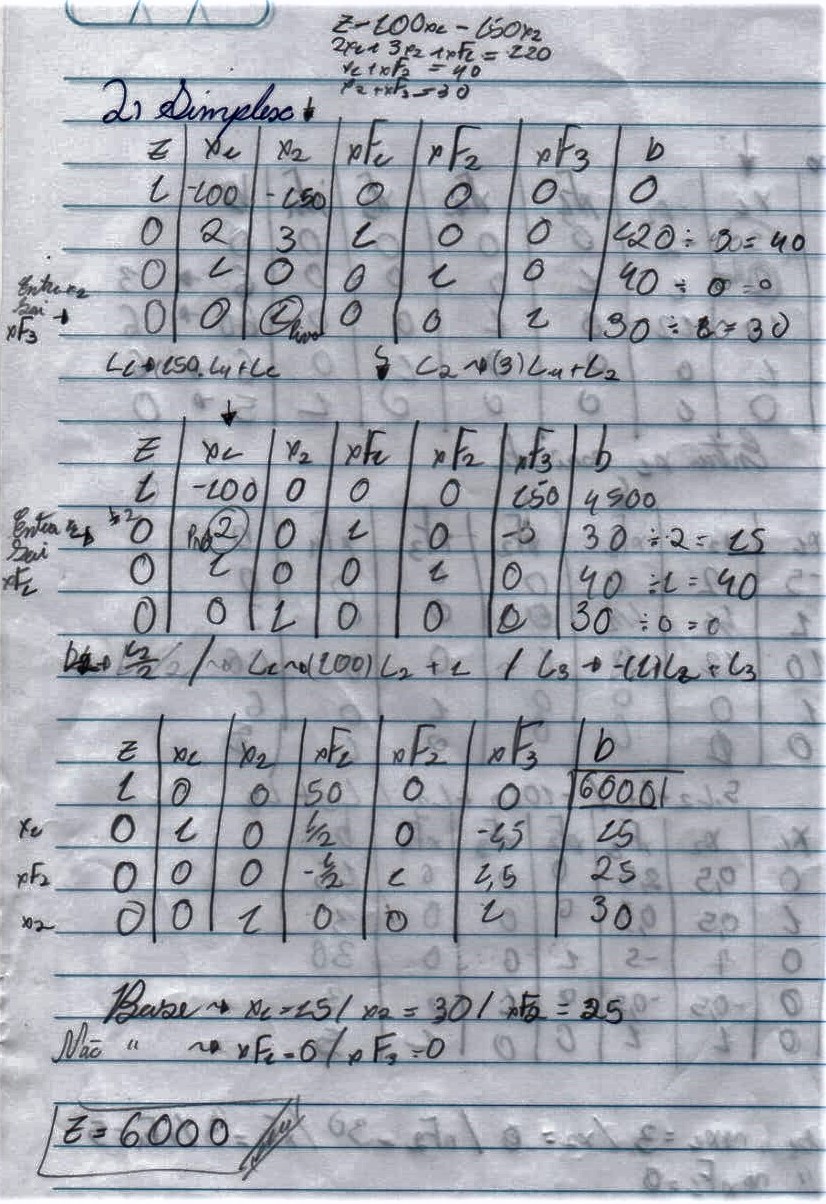 Z - 100x1 - 150x2
2x1 + 3x2 + xF1 = 120
x1 + xF2 = 40
x2 + xF3 = 30
2) Simplex ↓
Z x1 x2 xF1 xF2 xF3 b
1 -100 -150 0 0 0 0
0 2 3 1 0 0 120 ÷ 3 = 40
0 1 0 0 1 0 40 ÷ 0 = 0
Entra x2
Sai →
xF3
0 0 1 Pivo 0 0 1 30 ÷ 1 = 30
L1 → 150. L4 + L1 ↓ L2 → (3) L4 + L2
↓
Z x1 x2 xF1 xF2 xF3 b
1 -100 0 0 0 150 4500
Entra x1 →
Sai
xF1
0 Pivô 2 0 1 0 -3 30 ÷ 2 = 15
0 1 0 0 1 0 40 ÷ 1 = 40
0 0 1 0 0 0 30 ÷ 0 = 0
L2/2 / L1 → (100) L2 + 1 / L3 → -(1) L2 + L3
Z x1 x2 xF1 xF2 xF3 b
1 0 0 50 0 0 6000
x1 0 1 0 1/2 0 -1,5 15
xF2 0 0 0 -1/2 1 1,5 25
x2 0 0 1 0 0 1 30
Base → x1 = 15 / x2 = 30 / xF2 = 25
Não " → xF1 = 0 / xF3 = 0
Z = 6000